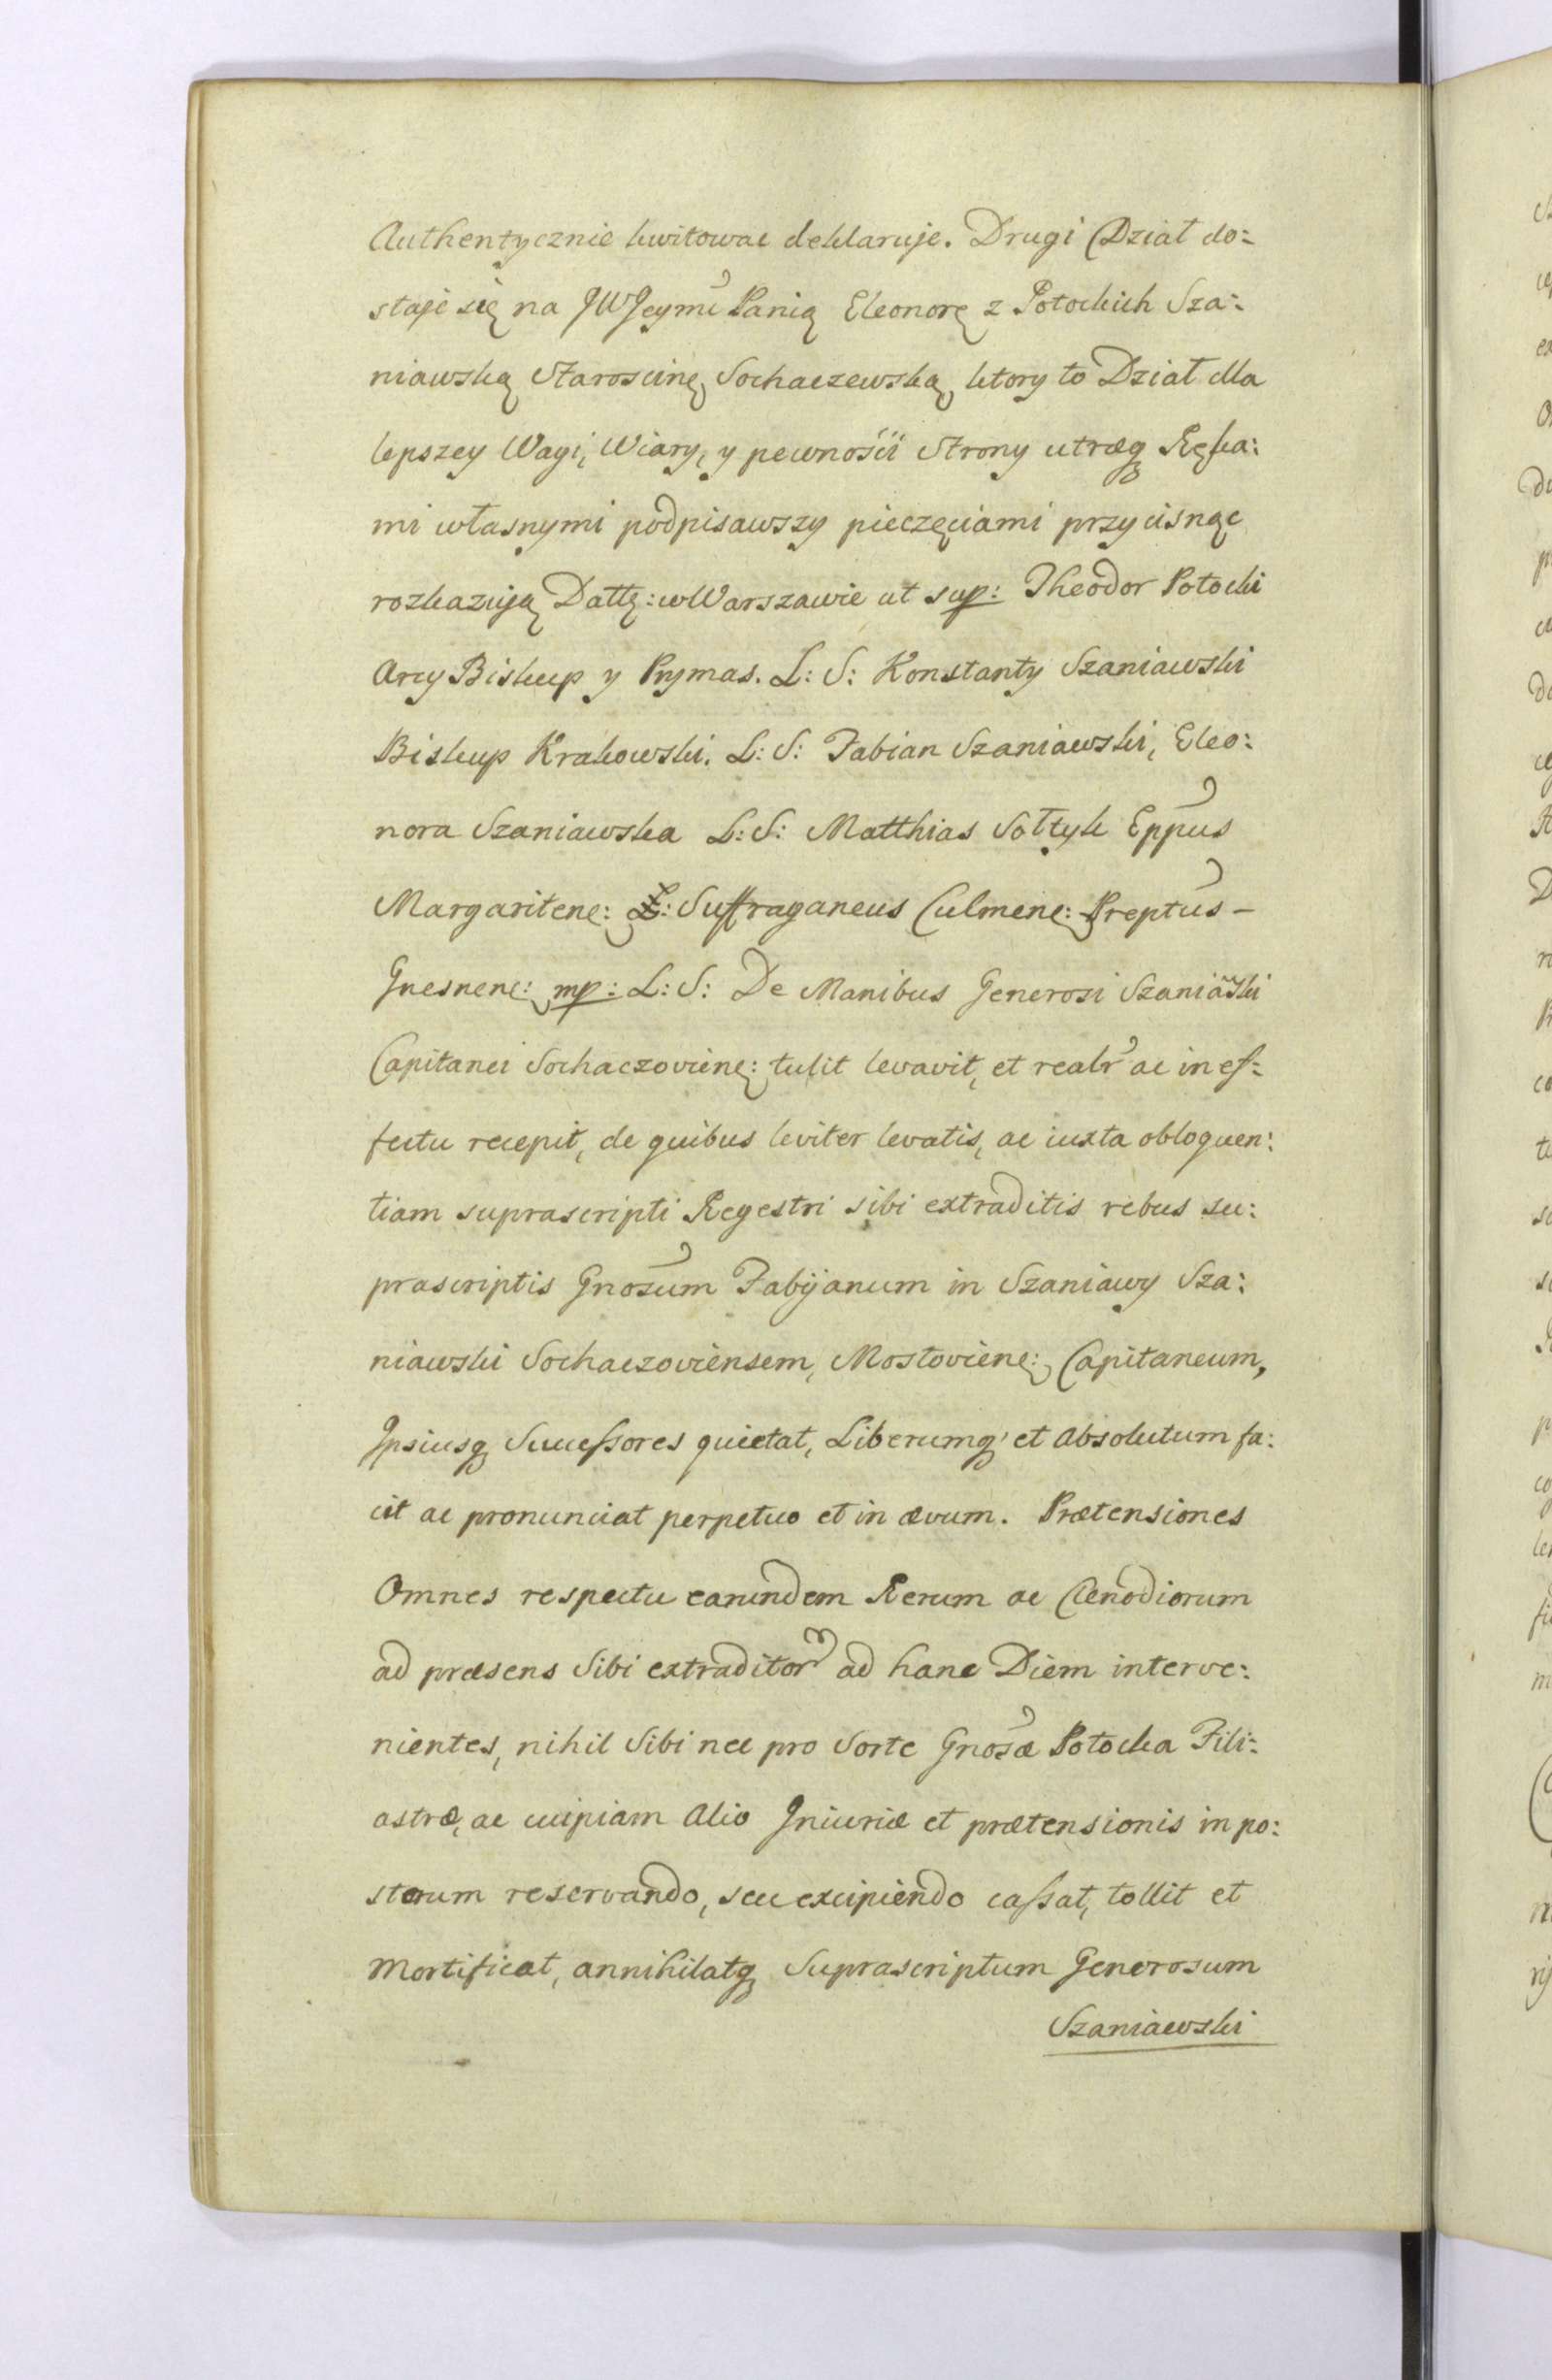 Authentycznie kwitowac deklaruje. Drugi Dział do:
staje się na JWJeymć Panią Eleonorę z Potockich Sza:
niawską Staroscinę Sochaczewską, ktory to Dział dla
lepszey Wagi, Wiary, y pewnośći Strony utræq Ręka:
mi własnymi podpisawszy pieczęciami przycisnąc
rozkazują Dattę: w Warszawie ut sup: Theodor Potocki
Arcy Biskup y Prymas. L: S: Konstanty Szaniawski
Biskup Krakowski. L: S: Fabian Szaniawski, Eleo:
nora Szaniawska L: S: Matthias Sołtyk Eppus
Margaritenę: Suffraganeus Culmenę: Preptus –
Gnesnenę: mp: L: S: De Manibus Generosi Szaniaski
Capitanei Sochaczovienę: tulit levavit, et realr ac in ef:
fectu recepit, de quibus leviter levatis, ac iuxta obloquen:
tiam suprascripti Regestri sibi extraditis rebus su:
prascriptis Gnosum Fabijanum in Szaniawy Sza:
niawski Sochaczoviensem, Mostovienę: Capitaneum,
Ipsiusq Successores quietat, Liberumq et Absolutum fa:
cit ac pronunciat perpetuo et in ævum. Prætensiones
Omnes respectu earundem Rerum ac Clenodiorum
ad præsens Sibi extraditor ad hanc Diem interve:
nientes, nihil Sibi nec pro Sorte Gnosæ Potocka Fili:
astræ, ac cuipiam Alio Iniuriæ et prætensionis in po:
sterum reservando, seu excipiendo cassat, tollit et
Mortificat, annihilatq Suprascriptum Generosum
Szaniawski